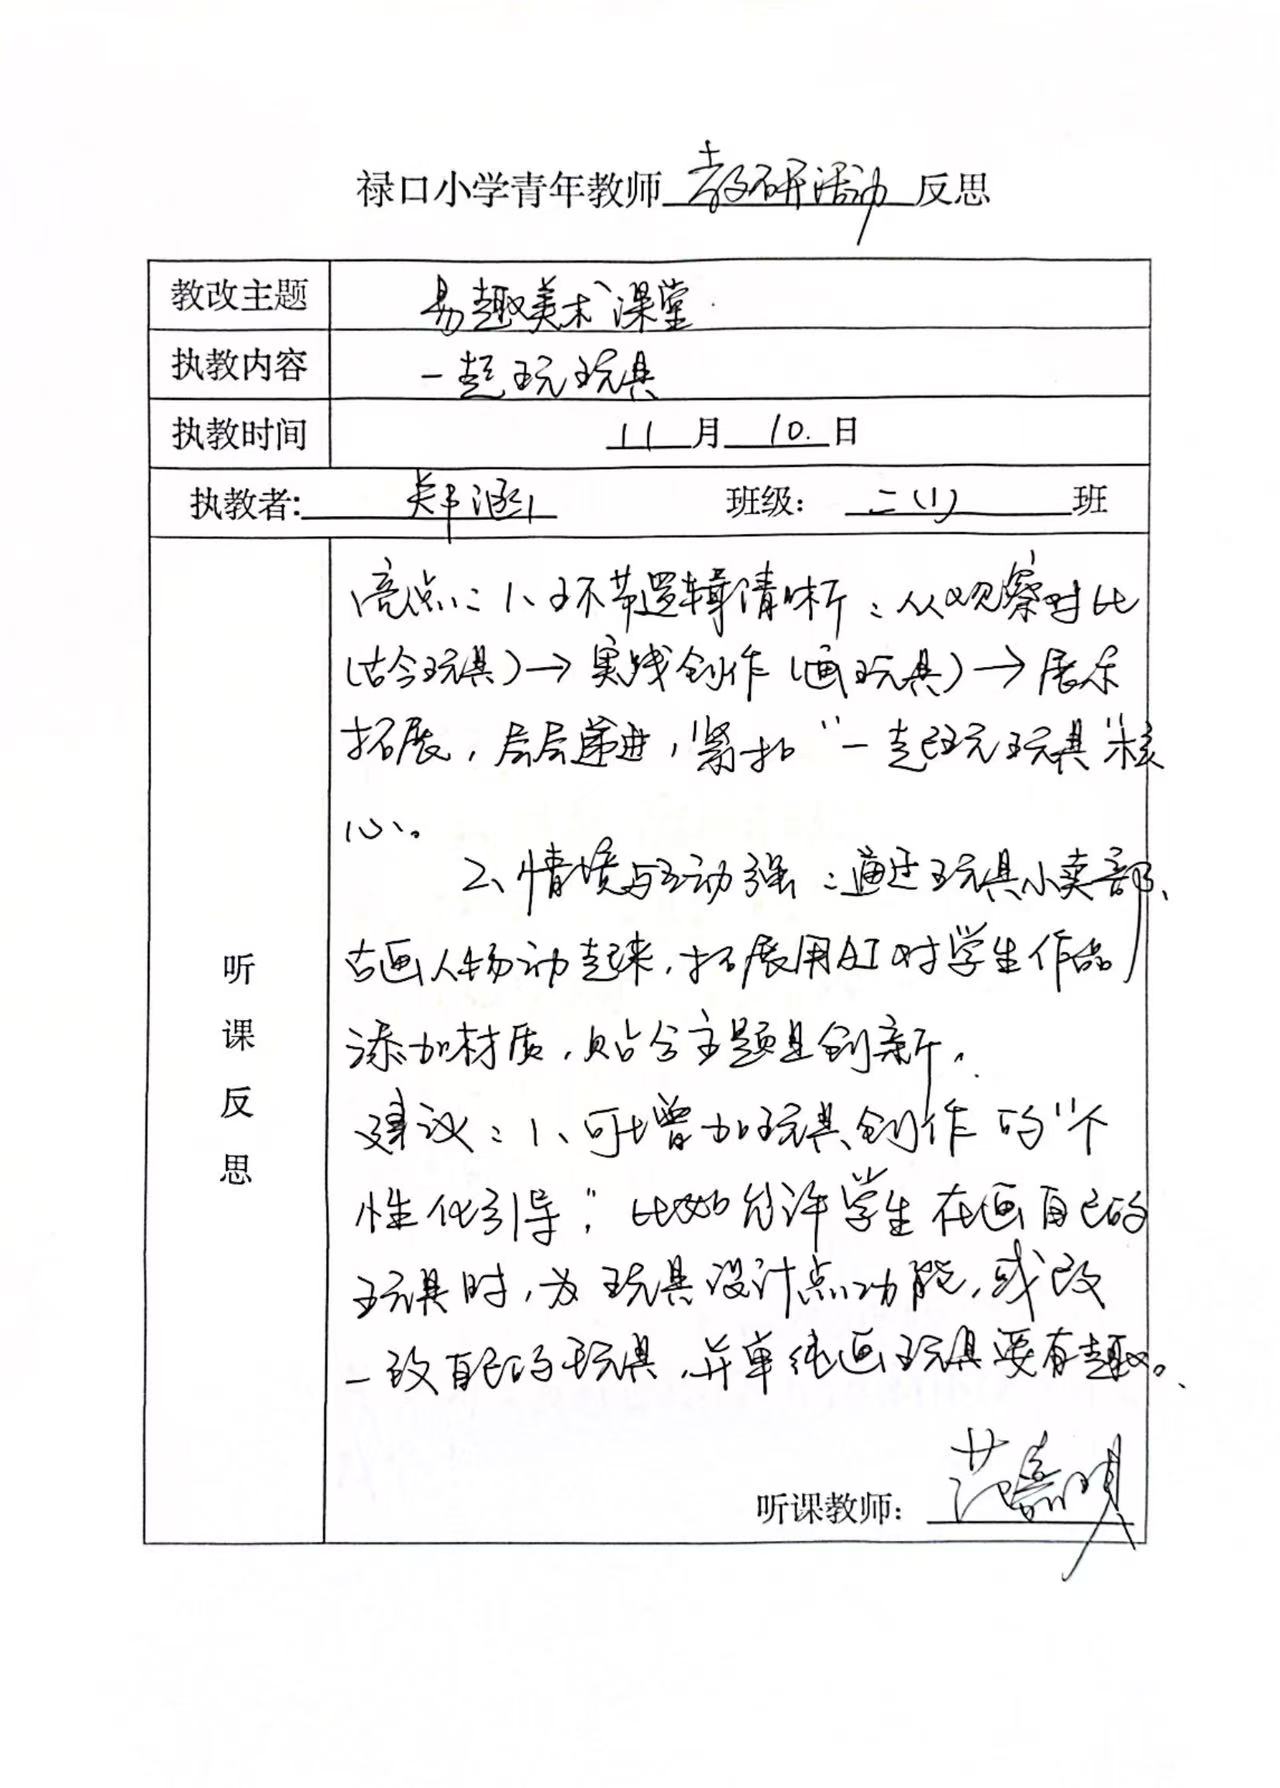 禄口小学青年教师 教研活动 反思
教改主题 易趣美术课堂
执教内容 一起玩玩具
执教时间 11月10.日
执教者: 郑涵 班级： 二（1） 班
听课反思
亮点：1、环节逻辑清晰：从观察对比
（古今玩具）→实践创作（画玩具）→展示
拓展，层层递进，紧扣“一起玩玩具”核
心。
2、情境与互动强：通过玩具小卖部、
古画人物动起来，拓展用AI对学生作品
添加材质，贴合主题且创新。
建议：1、可增加玩具创作的“个
性化引导”，比如允许学生在画自己的
玩具时，为玩具设计点功能，或改
一改自己的玩具，并单纯画玩具要有趣。
听课教师： 范嘉明